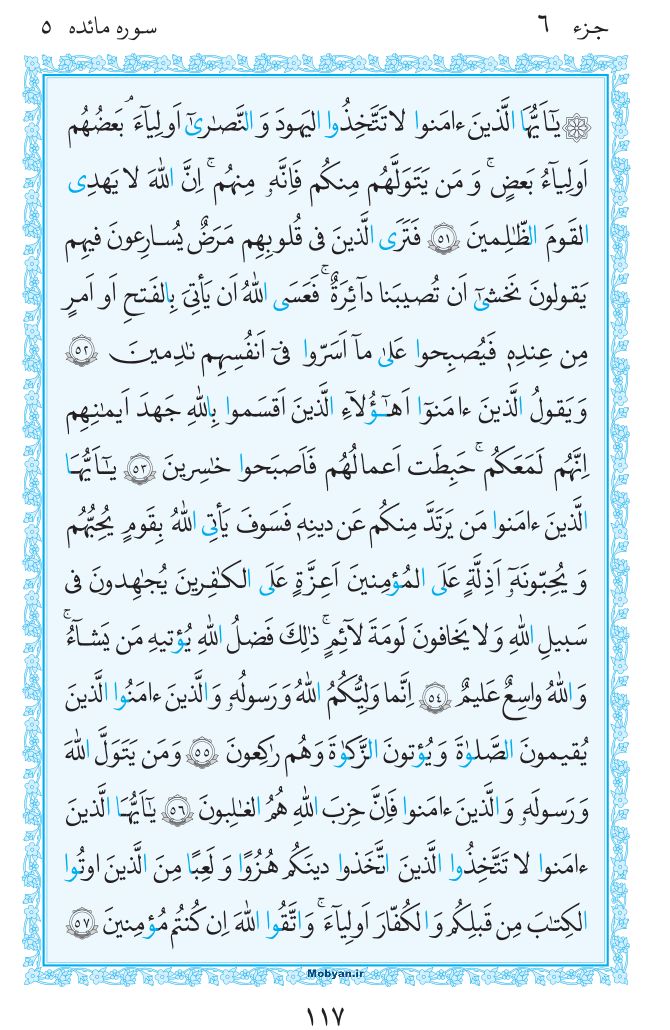 جزء ٦
سوره مائده ٥
۞ يٰٓاَيُّهَا الَّذينَ ءامَنوا لا تَتَّخِذُوا اليَهودَ وَ النَّصارىٰٓ اَولِيآءَ ۘ بَعضُهُم
اَولِيآءُ بَعضٍ ۚ وَ مَن يَتَوَلَّهُم مِنكُم فَاِنَّهٗ مِنهُم ۚ اِنَّ اللهَ لا يَهدِى
القَومَ الظّٰلِمينَ ﴿٥١﴾ فَتَرَى الَّذينَ فى قُلوبِهِم مَرَضٌ يُسارِعونَ فيهِم
يَقولونَ نَخشىٰٓ اَن تُصيبَنا دآئِرَةٌ ۚ فَعَسَى اللهُ اَن يَأتِىَ بِالفَتحِ اَو اَمرٍ
مِن عِندِهٖ فَيُصبِحوا عَلىٰ مآ اَسَرّوا فىٓ اَنفُسِهِم نٰدِمينَ ﴿٥٢﴾
وَ يَقولُ الَّذينَ ءامَنوٓا اَهٰٓؤُلآءِ الَّذينَ اَقسَموا بِاللهِ جَهدَ اَيمٰنِهِم
اِنَّهُم لَمَعَكُم ۚ حَبِطَت اَعمالُهُم فَاَصبَحوا خٰسِرينَ ﴿٥٣﴾ يٰٓاَيُّهَا
الَّذينَ ءامَنوا مَن يَرتَدَّ مِنكُم عَن دينِهٖ فَسَوفَ يَأتِى اللهُ بِقَومٍ يُحِبُّهُم
وَ يُحِبّونَهٗٓ اَذِلَّةٍ عَلَى المُؤمِنينَ اَعِزَّةٍ عَلَى الكٰفِرينَ يُجٰهِدونَ فى
سَبيلِ اللهِ وَ لا يَخافونَ لَومَةَ لآئِمٍ ۚ ذٰلِكَ فَضلُ اللهِ يُؤتيهِ مَن يَشآءُ ۚ
وَ اللهُ واسِعٌ عَليمٌ ﴿٥٤﴾ اِنَّما وَلِيُّكُمُ اللهُ وَ رَسولُهٗ وَ الَّذينَ ءامَنُوا الَّذينَ
يُقيمونَ الصَّلوٰةَ وَ يُؤتونَ الزَّكوٰةَ وَ هُم رٰكِعونَ ﴿٥٥﴾ وَ مَن يَتَوَلَّ اللهَ
وَ رَسولَهٗ وَ الَّذينَ ءامَنوا فَاِنَّ حِزبَ اللهِ هُمُ الغٰلِبونَ ﴿٥٦﴾ يٰٓاَيُّهَا الَّذينَ
ءامَنوا لا تَتَّخِذُوا الَّذينَ اتَّخَذوا دينَكُم هُزُوًا وَ لَعِبًا مِنَ الَّذينَ اوتُوا
الكِتٰبَ مِن قَبلِكُم وَ الكُفّارَ اَولِيآءَ ۚ وَ اتَّقُوا اللهَ اِن كُنتُم مُؤمِنينَ ﴿٥٧﴾
Mobyan.ir
١١٧